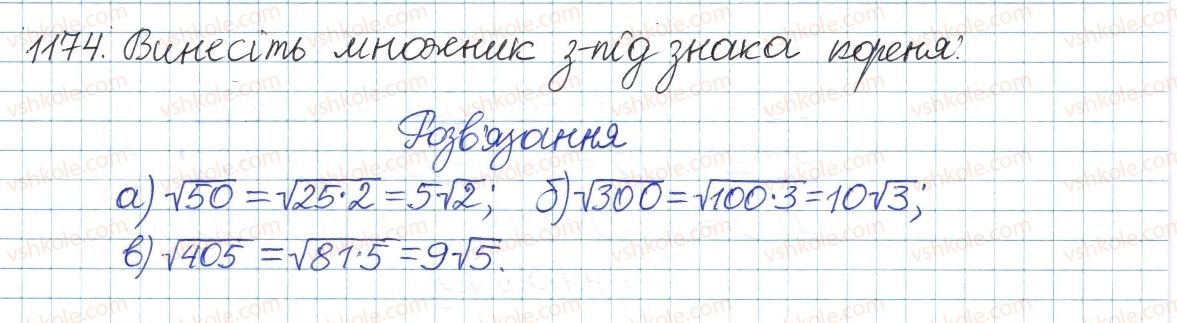 1174. Винесіть множник з-під знака кореня:
Розв'язання
а) √50 = √25·2 = 5√2; б) √300 = √100·3 = 10√3;
в) √405 = √81·5 = 9√5.
vshkole.com